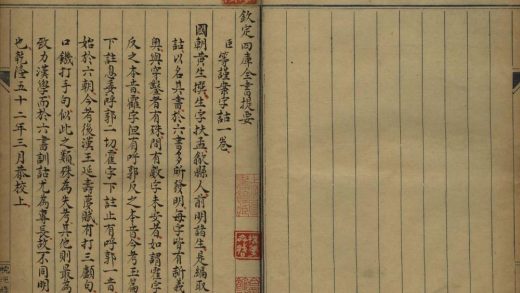 欽定四庫全書提要
臣等謹案字詁一卷
國朝黃生撰生字扶孟歙縣人前明諸生是編取
詁以名其書於六書多所發明每字皆有新義
奧與穿鑿者有殊間有數字未安者如謂靃字
反之本音靃字但有呼郭反之本音今考玉篇
下註息委呼郭一切靃字下註止有呼郭一音
始於六朝今考後漢王延壽夢賦有打三顱句
口鐵打手句似此之類殊為失考其他則最為
致力漢學而於六書訓詁尤為專長故不同明
也乾隆五十二年三月恭校上